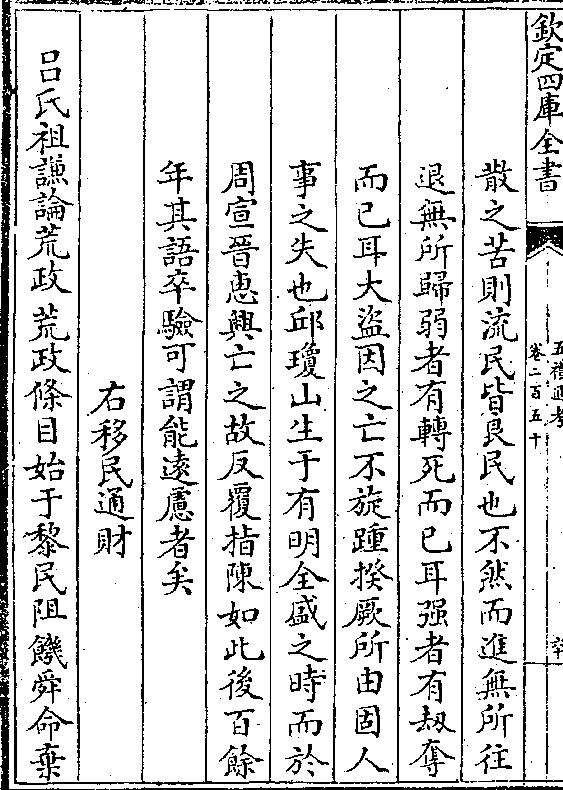 欽定四庫全書
五禮通考
卷二百五十
散之苦則流民皆良民也不然而進無所往
退無所歸弱者有轉死而已耳强者有刼奪
而已耳大盜因之亡不旋踵揆厥所由固人
事之失也邱瓊山生于有明全盛之時而於
周宣晉惠興亡之故反覆指陳如此後百餘
年其語卒驗可謂能遠慮者矣
右移民通財
吕氏祖謙論荒政 荒政條目始于黎民阻饑舜命棄